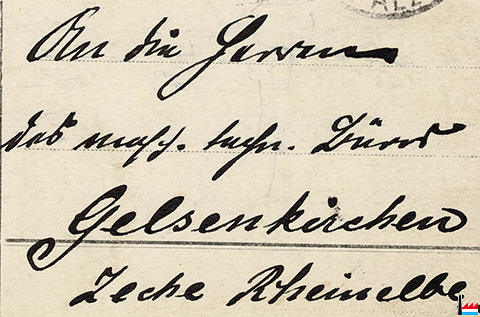 ALL
An die Herren
des masch. techn. Büros
Gelsenkirchen
Zeche Rheinelbe